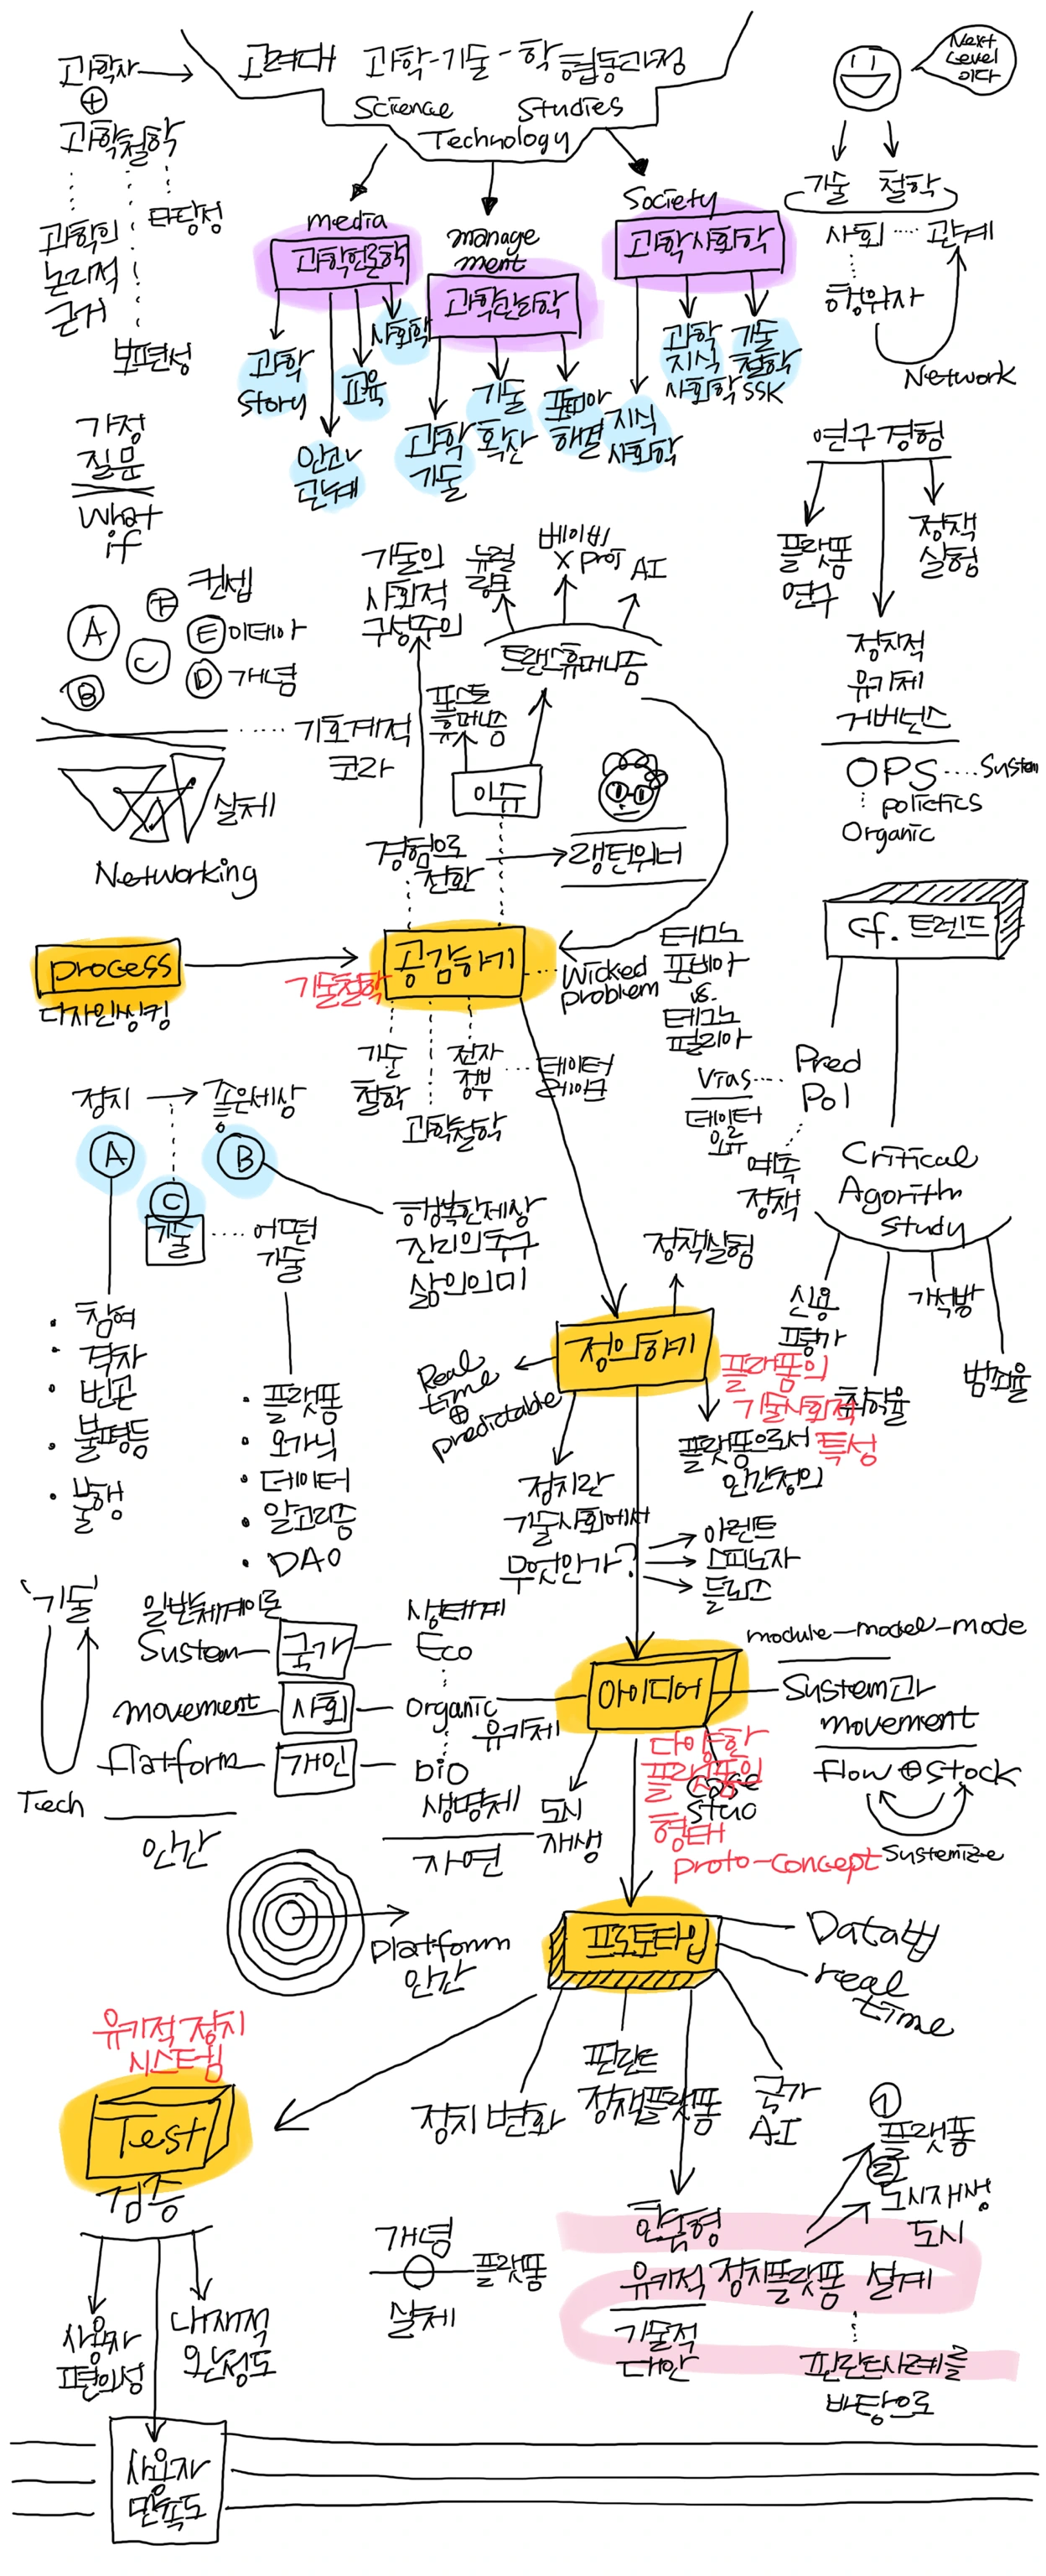 고려대 과학-기술-학 협동과정
Science Studies
Technology
과학자
과학철학
과학의
논리적
근거
타당성
보편성
Next
Level
이다
기술 철학
사회 관계
행위자
Network
media
과학언론학
manage
ment
과학관리학
Society
과학사회학
과학
Story
교육
사회학
과학
기술
기술
확산
지식
사회학
과학
지식
사회학
기술
철학
SSK
가정
질문
What
if
연구경험
플랫폼
연구
정책
실험
정치적
유기체
거버넌스
OPS
System
Organic
A
B
C
D 개념
E 이데아
컨셉
기호계적
코라
실제
Networking
기술의
사회적
구성주의
뉴럴
링크
베이비
X proj
AI
트랜스휴머니즘
포스트
휴머니즘
이슈
경험으로
전환
랭턴위너
cf. 트렌드
process
디자인씽킹
공감하기
기술철학
Wicked
problem
테크노
포비아
vs.
테크노
필리아
기술
철학
과학철학
전자
정부
Pred
Pol
Vias
데이터
오류
예측
정책
Critical
Agorithm
Study
신용
평가
취학율
가석방
범죄율
정치
좋은세상
A
B
C
기술
어떤
기술
행복한세상
진리의추구
삶의의미
· 참여
· 격차
· 빈곤
· 불평등
· 불행
· 플랫폼
· 오가닉
· 데이터
· 알고리즘
· DAO
정책실험
정의하기
Real
time
⊕
predictable
플랫폼의
기술사회적
특성
플랫폼으로서
인간정의
정치란
기술사회에서
무엇인가?
아렌트
스피노자
들뢰즈
'기술'
Tech
일반체계이론
System
국가
생태계
Eco
movement
사회
Organic
유기체
flatform
개인
bio
생명체
인간
자연
아이디어
module-model-mode
System과
movement
flow ⊕ stock
Systemize
다양한
플랫폼의
형태
proto-concept
case
도시
재생
Platform
인간
프로토타입
Data법
real
time
유기적 정치
시스템
Test
검증
정치 변화
핀란드
정책플랫폼
국가
AI
① 플랫폼
②
도시재생
도시
한국형
유기적 정치플랫폼 설계
기술적
대안
핀란드사례를
바탕으로
개념
플랫폼
실제
사용자
편의성
내재적
완성도
사용자
만족도